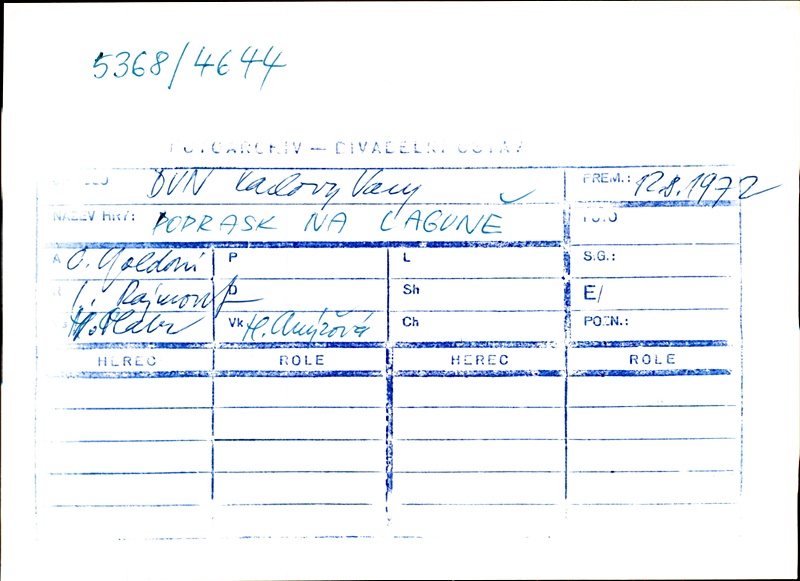 5368/4644
FOTOARCHIV — DIVADELNÍ ÚSTAV
DIVADLO DVN Karlovy Vary PREM.: 12.8.1972
NÁZEV HRY: POPRASK NA LAGUNĚ FOTO
A C. Goldoni P L S.G.:
R J. Rajmont D Sh E/
Vk Ch POZN.:
HEREC ROLE HEREC ROLE